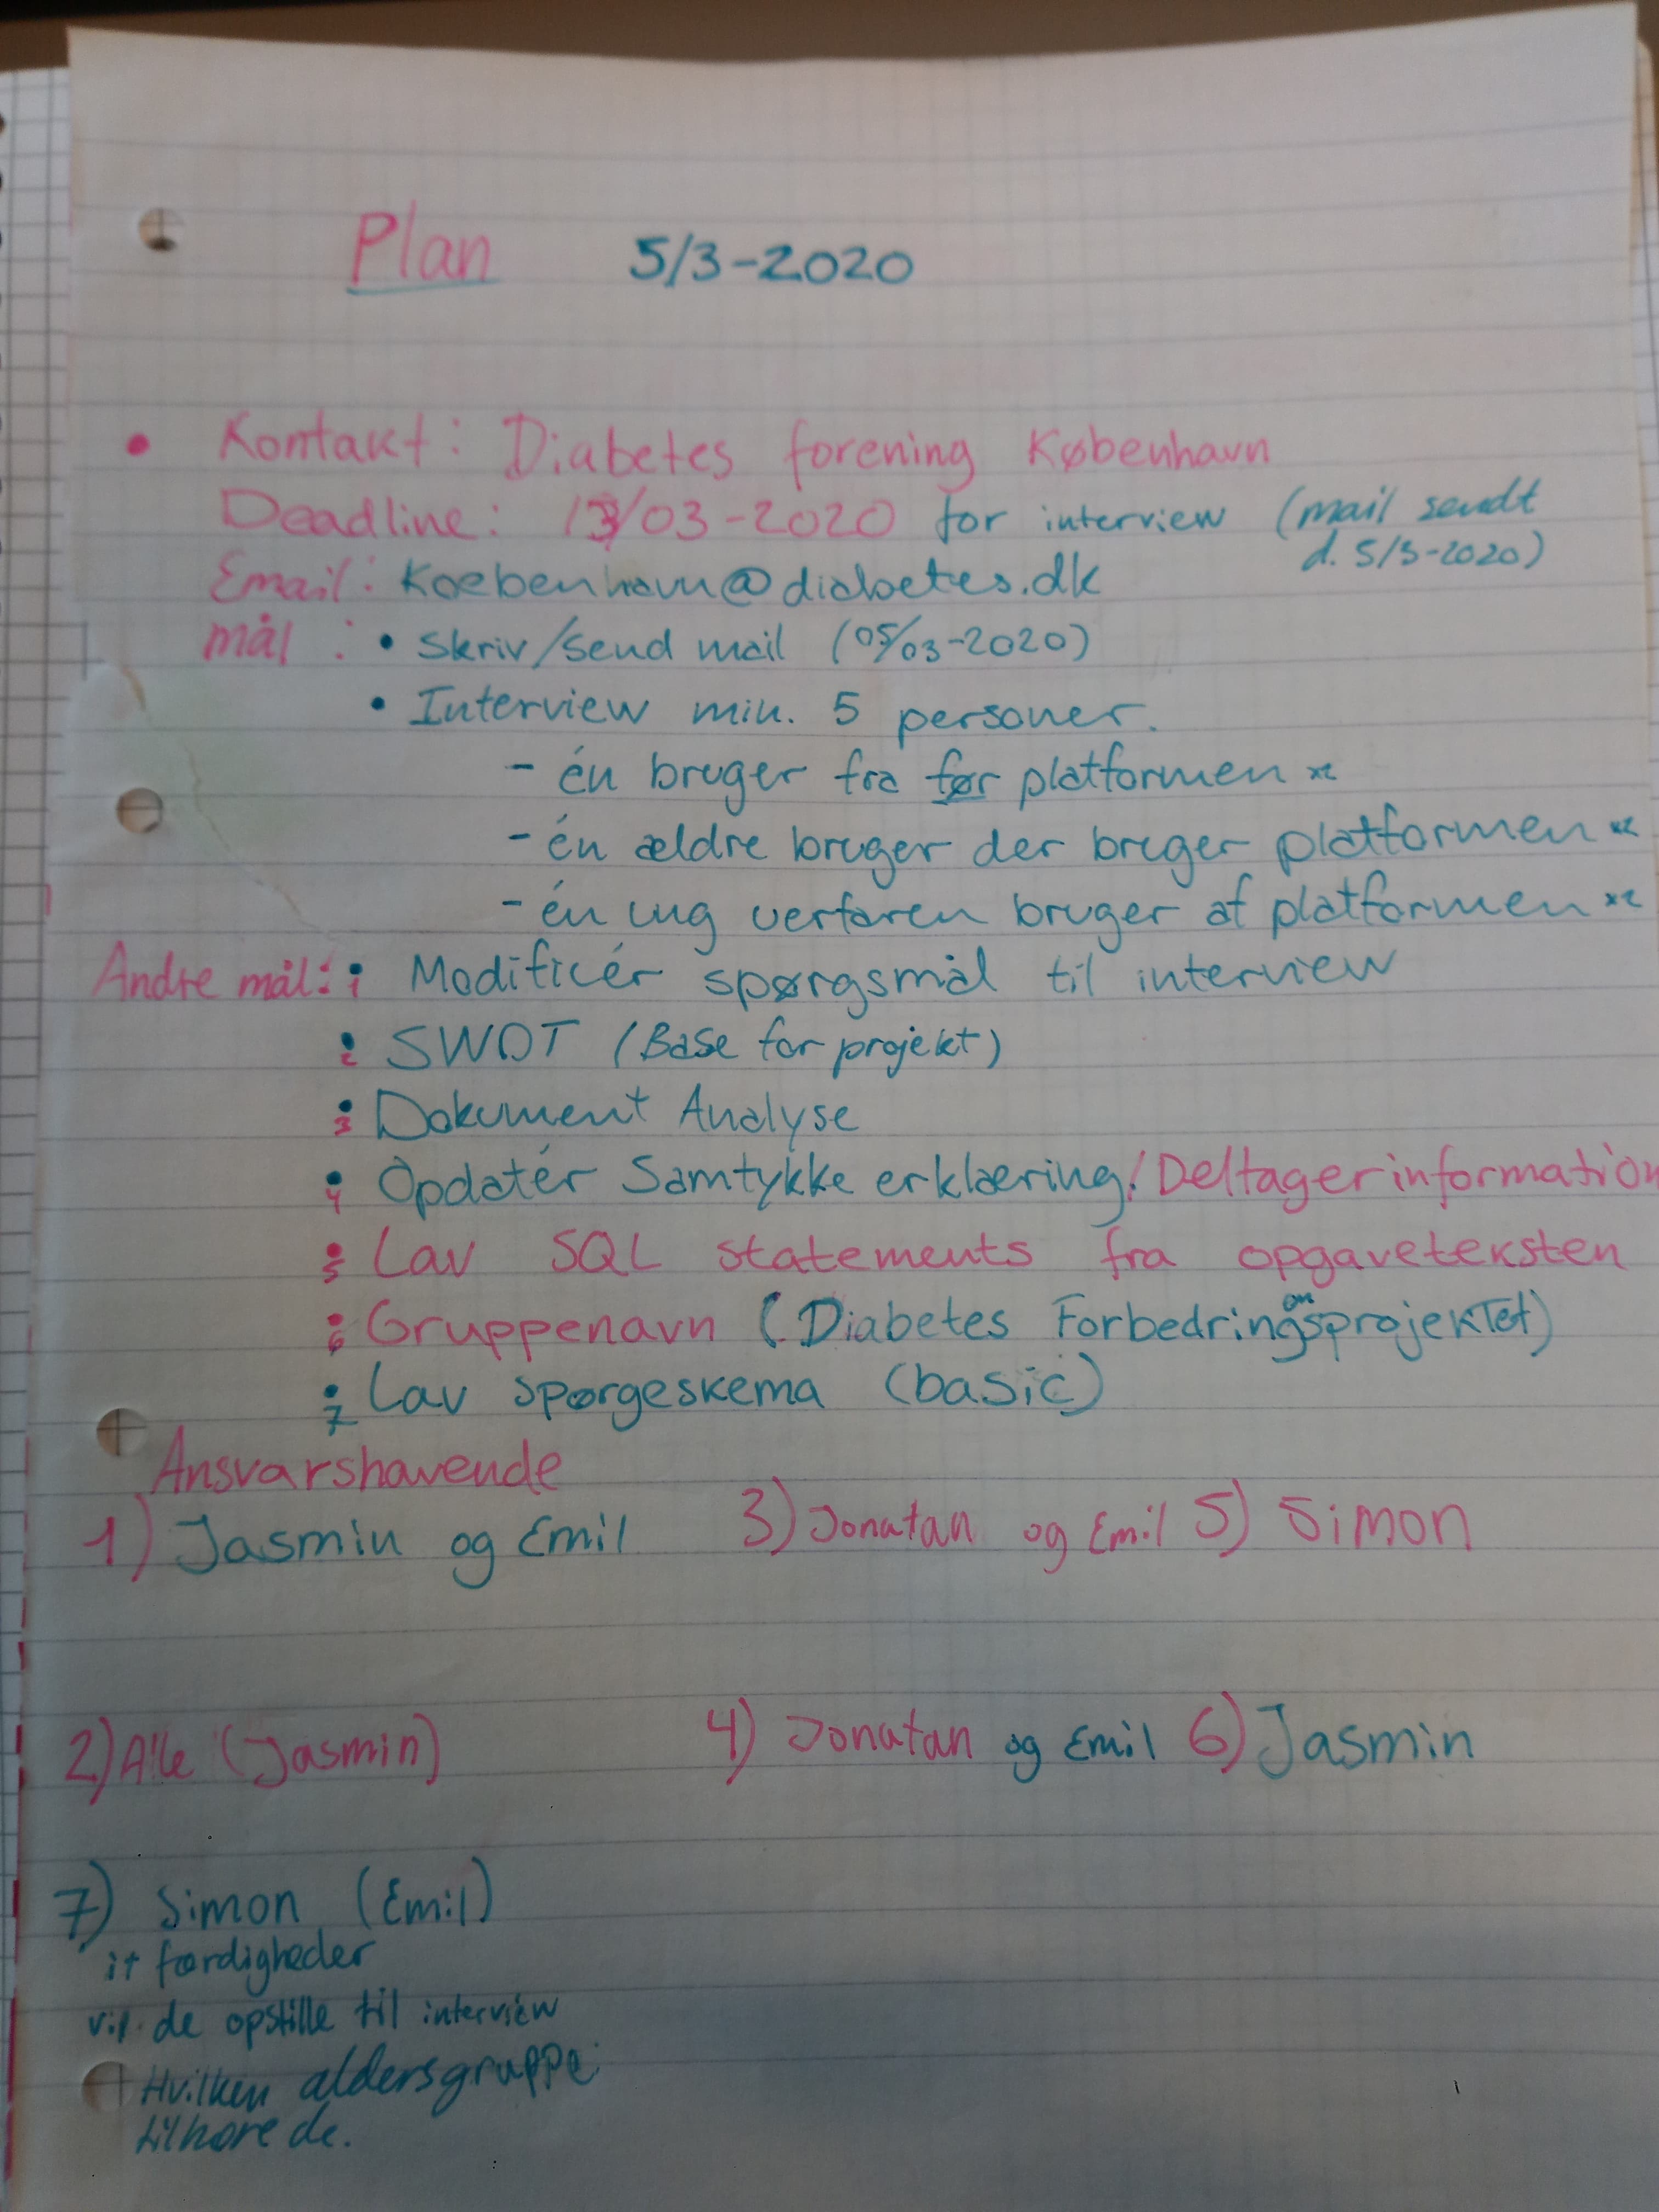 Plan 5/3-2020
• Kontakt: Diabetes forening København
Deadline: 13/03-2020 for interview (mail sendt
d. 5/3-2020)
Email: Koebenhavn@diabetes.dk
mål : • Skriv/send mail (05/03-2020)
• Interview min. 5 personer.
- én bruger fra før platformen x2
- én ældre bruger der bruger platformen x2
- én ung verfaren bruger af platformen x2
Andre mål: 1 Modificér spørgsmål til interview
2 SWOT (Base for projekt)
3 Dokument Analyse
4 Opdatér Samtykke erklæring/Deltagerinformation
5 Lav SQL statements fra opgaveteksten
6 Gruppenavn (Diabetes Forbedringsprojektet)
7 Lav spørgeskema (basic)
Ansvarshavende
1) Jasmin og Emil 3) Jonatan og Emil 5) Simon
2) Alle (Jasmin) 4) Jonatan og Emil 6) Jasmin
7) Simon (Emil)
it færdigheder
vil de opstille til interview
Hvilken aldersgruppe
tilhøre de.